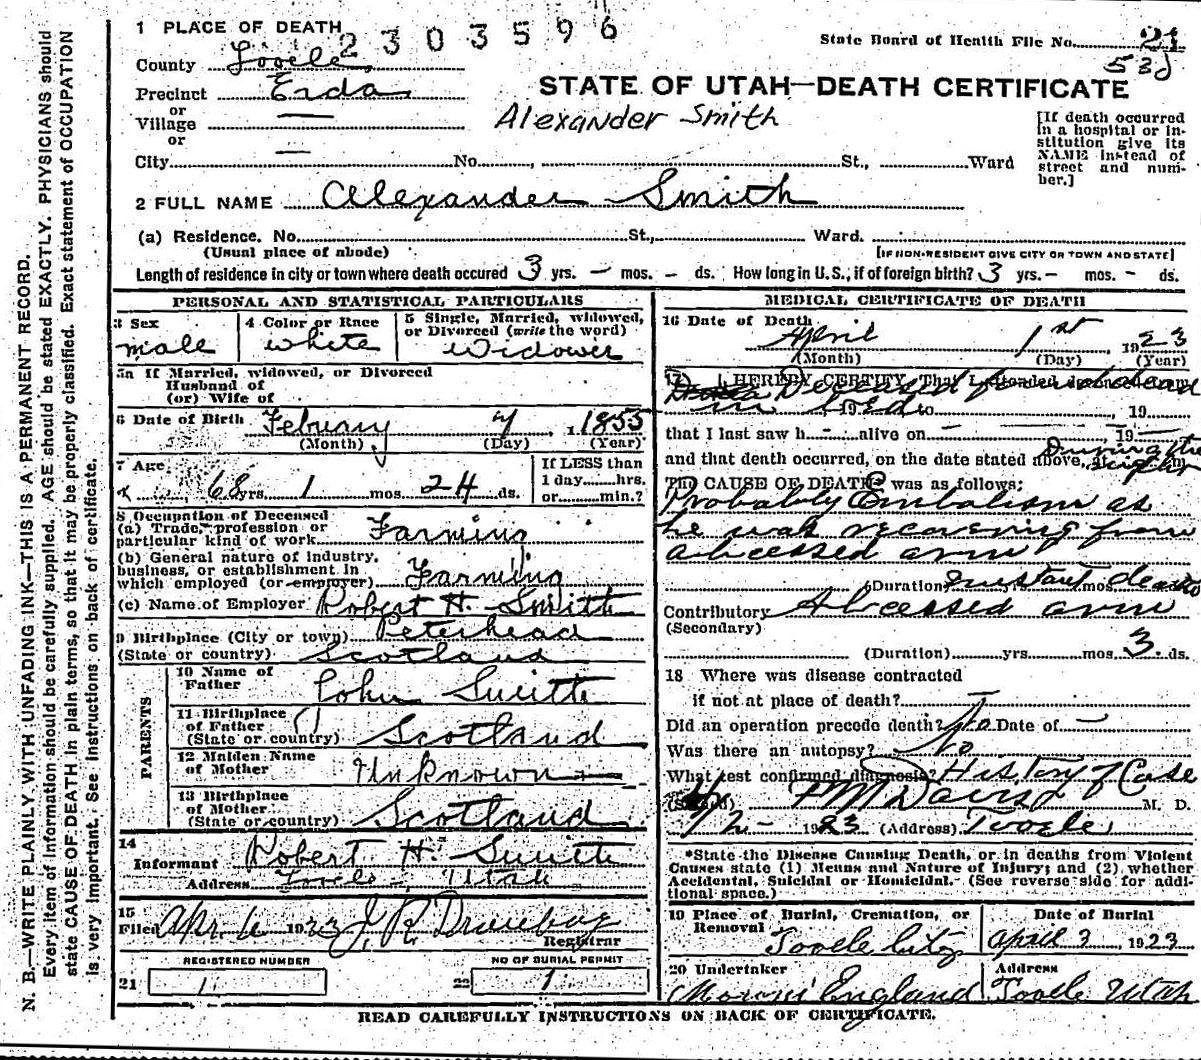 1 PLACE OF DEARTH
2303596
State Board of Health File No. 21
530
County Tooele
Precinct Erda
or
Village
or
STATE OF UTAH—DEATH CERTIFICATE
Alexander Smith
[If death occurred in a hospital or institution give its NAME instead of street and number.]
City No. , St., Ward
2 FULL NAME Alexander Smith
(a) Residence. No. St., Ward.
(Usual place of abode) [IF NON-RESIDENT GIVE CITY OR TOWN AND STATE]
Length of residence in city or town where death occured 3 yrs. – mos. – ds. How long in U.S., if of foreign birth? 3 yrs. – mos. – ds.
PERSONAL AND STATISTICAL PARTICULARS
3 Sex
male
4 Color or Race
white
5 Single, Married, widowed, or Divorced (write the word)
Widower
5a If Married, widowed, or Divorced
Husband of
(or) Wife of
6 Date of Birth Febuary 7, 1855
(Month) (Day) (Year)
7 Age
68 yrs. 1 mos. 24 ds.
If LESS than
1 day hrs.
or min.?
8 Occupation of Deceased
(a) Trade, profession or
particular kind of work Farming
(b) General nature of industry,
business, or establishment in
which employed (or employer) Farming
(c) Name of Employer Robert H. Smith
9 Birthplace (City or town) Peterhead
(State or country) Scotland
PARENTS
10 Name of
Father John Smith
11 Birthplace
of Father
(State or country) Scotland
12 Maiden Name
of Mother Unknown
13 Birthplace
of Mother
(State or country) Scotland
14
Informant Robert H. Smith
Address Tooele - Utah
15
Filed Apr. 6 1923
Registrar
REGISTERED NUMBER
21 1
NO OF BURIAL PERMIT
22 1
MEDICAL CERTIFICATE OF DEATH
16 Date of Death
April 1st 1923
(Month) (Day) (Year)
17 I HEREBY CERTIFY, That I attended deceased from
Deceased found dead
in bed
19 to , 19
that I last saw h – alive on – 19 –
and that death occurred, on the date stated above, at m
During the night
The CAUSE OF DEATH* was as follows:
Probably Embolism as
he was recovering from
abcessed arm
(Duration) instant death mos.
Contributory Abcessed arm
(Secondary)
(Duration) yrs. mos. 3 ds.
18 Where was disease contracted
if not at place of death?
Did an operation precede death? No Date of –
Was there an autopsy? No
What test confirmed diagnosis? History of Case
(Signed) F M Davis M. D.
4/2- 1923 (Address) Tooele
*State the Disease Causing Death, or in deaths from Violent
Causes state (1) Means and Nature of Injury; and (2) whether
Accidental, Suicidal or Homicidal. (See reverse side for additional space.)
19 Place of Burial, Cremation, or
Removal
Tooele City
Date of Burial
April 3 1923
20 Undertaker
Moroni England
Address
Tooele Utah
READ CAREFULLY INSTRUCTIONS ON BACK OF CERTIFICATE.
N. B.—WRITE PLAINLY, WITH UNFADING INK—THIS IS A PERMANENT RECORD.
Every item of information should be carefully supplied. AGE should be stated EXACTLY. PHYSICIANS should
state CAUSE OF DEATH in plain terms, so that it may be properly classified. Exact statement of OCCUPATION
is very important. See instructions on back of certificate.